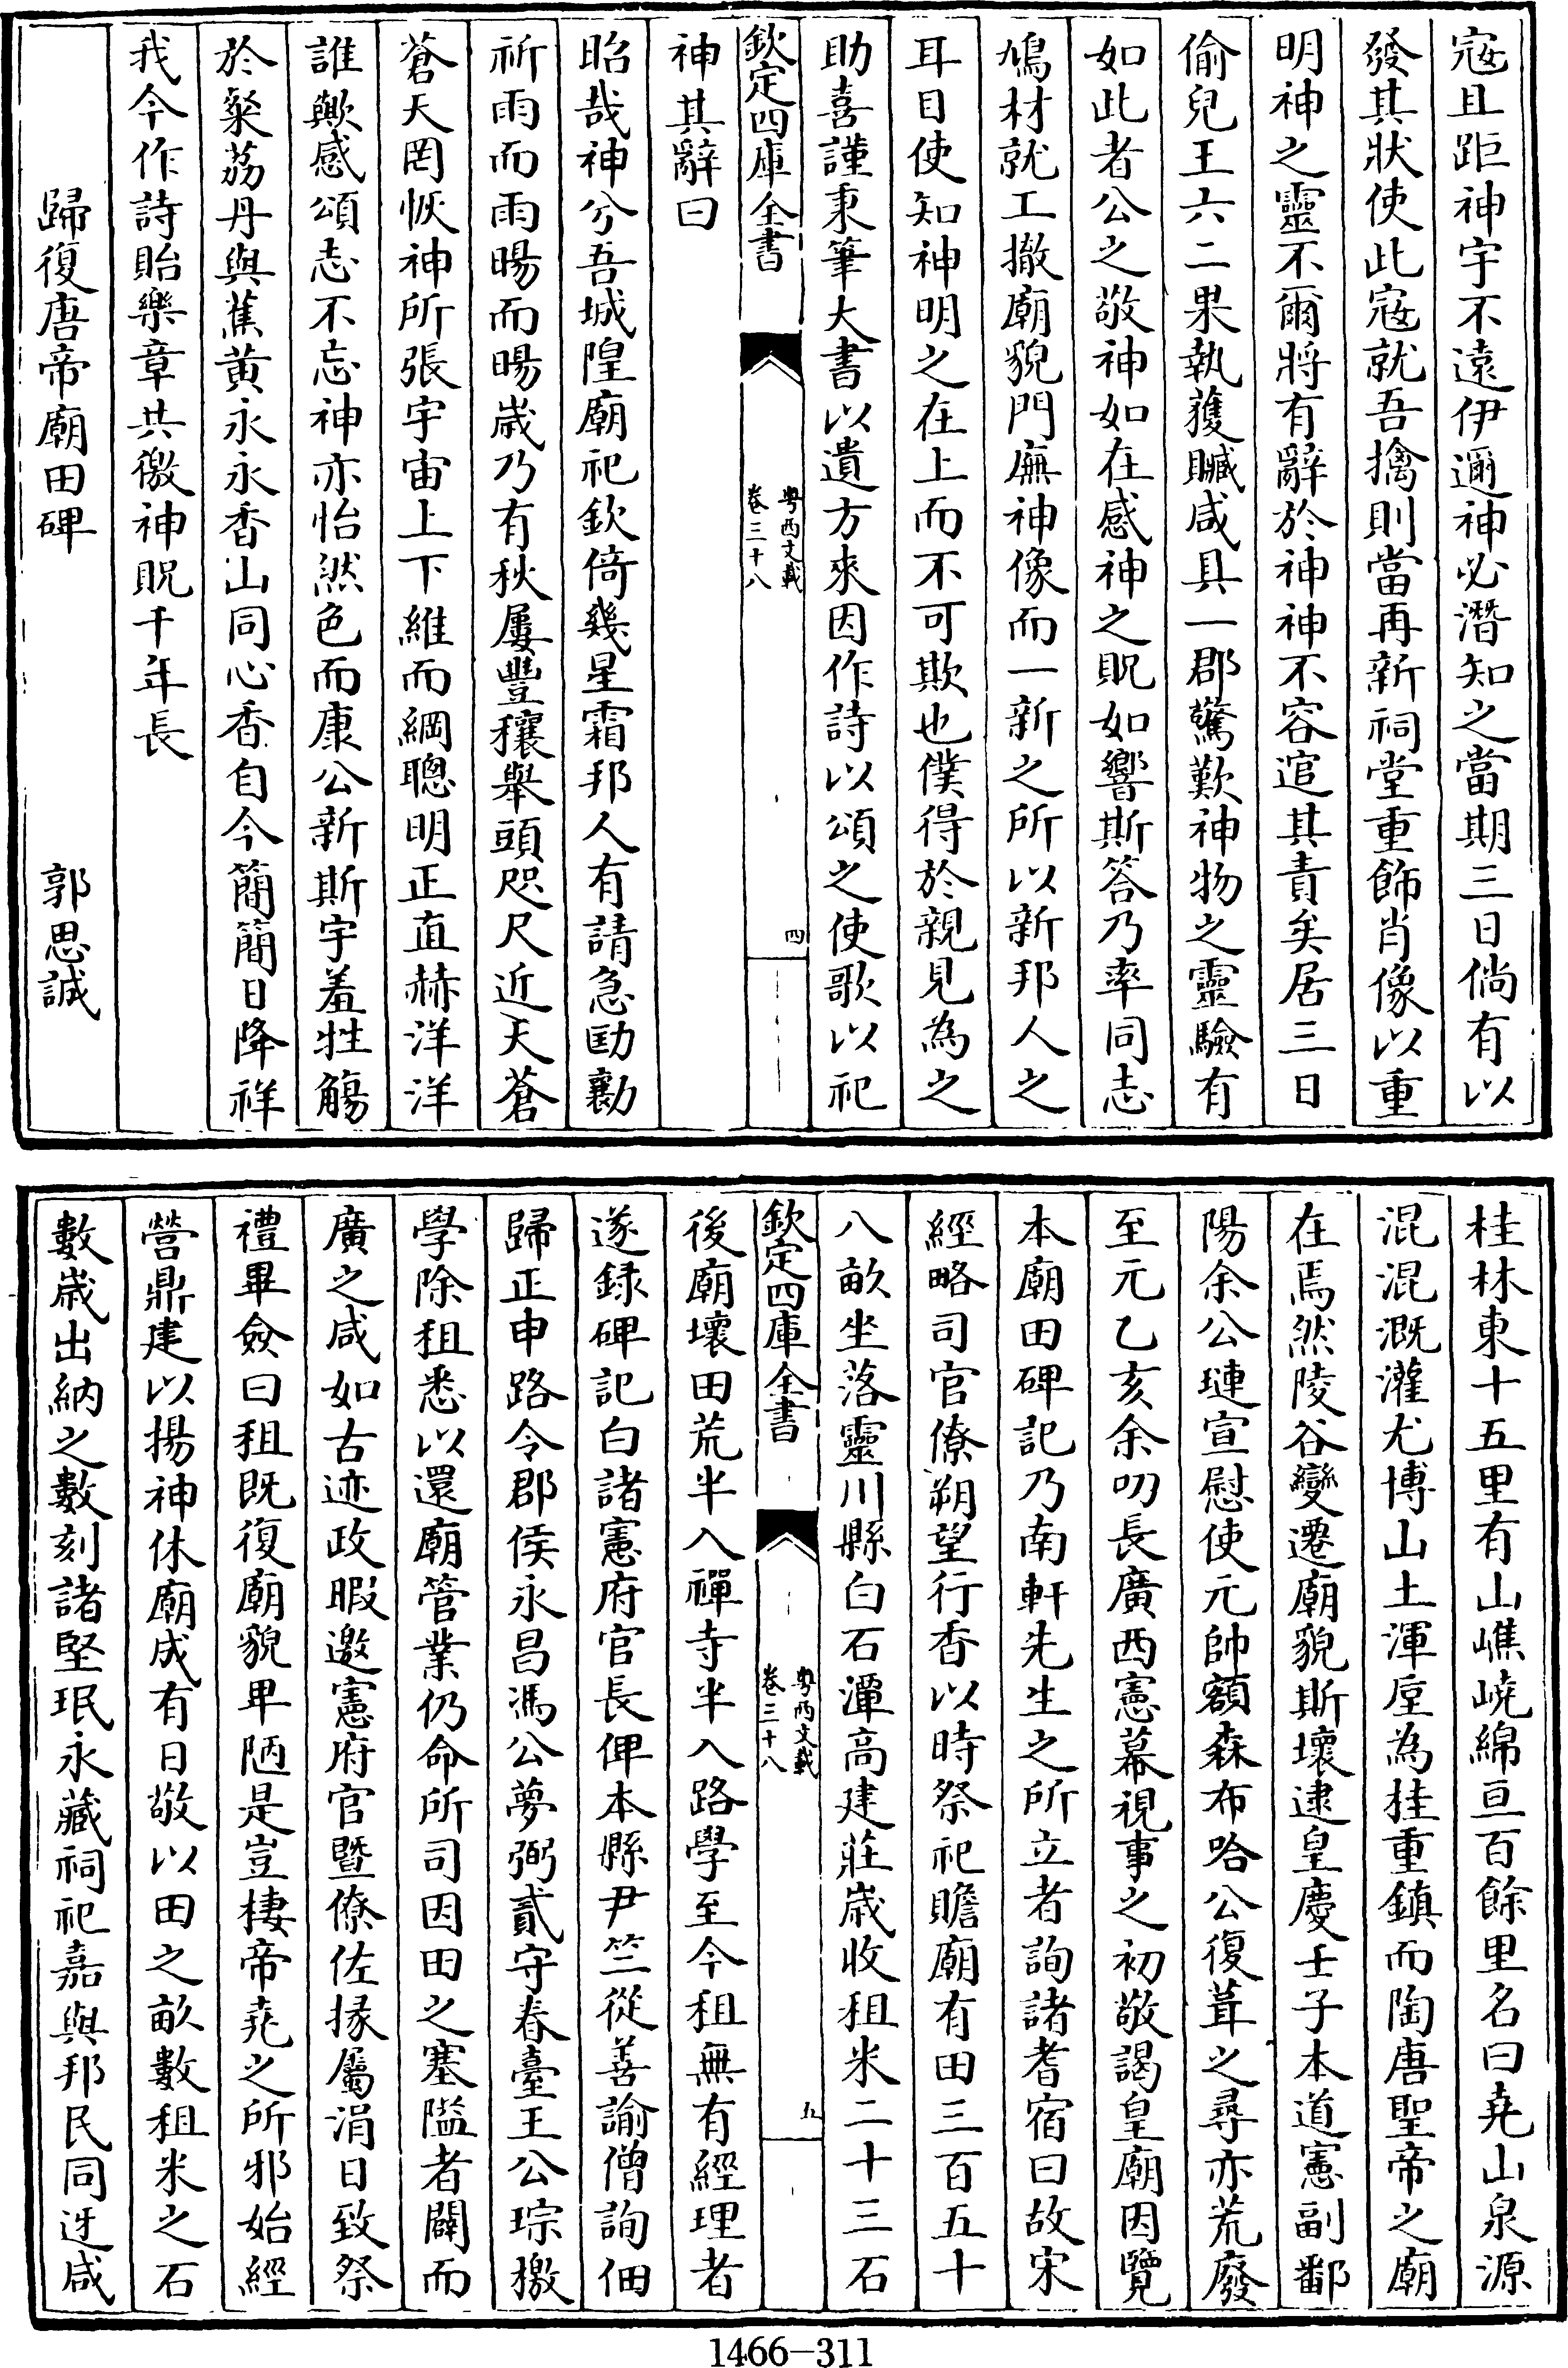 寇且距神宇不遠伊邇神必潛知之當期三日倘有以
發其狀使此寇就吾擒則當再新祠堂重飾肖像以重
明神之靈不爾將有辭於神神不容逭其責矣居三日
偷兒王六二果執獲贓咸具一郡驚歎神物之靈驗有
如此者公之敬神如在感神之貺如響斯答乃率同志
鳩材就工撤廟貌門廡神像而一新之所以新邦人之
耳目使知神明之在上而不可欺也僕得於親見為之
助喜謹秉筆大書以遺方來因作詩以頌之使歌以祀
欽定四庫全書
粤西文載
卷三十八
四
神其辭曰
昭哉神兮吾城隍廟祀欽倚幾星霜邦人有請急劻勷
祈雨而雨暘而暘歲乃有秋屢豐穰舉頭咫尺近天蒼
蒼天罔恢神所張宇宙上下維而綱聰明正直赫洋洋
誰歟感頌志不忘神亦怡然色而康公新斯宇羞牲觴
於粲荔丹與蕉黃永永香山同心香自今簡簡日降祥
我今作詩貽樂章共徼神貺千年長
歸復唐帝廟田碑 郭思誠
桂林東十五里有山嶕嶢綿亘百餘里名曰堯山泉源
混混溉灌尤博山土渾厚為桂重鎮而陶唐聖帝之廟
在焉然陵谷變遷廟貌斯壞逮皇慶壬子本道憲副鄱
陽余公璉宣慰使元帥額森布哈公復葺之尋亦荒廢
至元乙亥余叨長廣西憲幕視事之初敬謁皇廟因覽
本廟田碑記乃南軒先生之所立者詢諸耆宿曰故宋
經略司官僚朔望行香以時祭祀贍廟有田三百五十
八畝坐落靈川縣白石潭高建莊歲收租米二十三石
欽定四庫全書
粤西文載
卷三十八
五
後廟壞田荒半入禪寺半入路學至今租無有經理者
遂録碑記白諸憲府官長俾本縣尹竺從善諭僧詢佃
歸正申路令郡侯永昌馮公夢弼貳守春臺王公琮檄
學除租悉以還廟管業仍命所司因田之塞隘者闢而
廣之咸如古迹政暇邀憲府官暨僚佐掾屬涓日致祭
禮畢僉曰租既復廟貌卑陋是豈棲帝堯之所邪始經
營鼎建以揚神休廟成有日敬以田之畝數租米之石
數歲出納之數刻諸堅珉永藏祠祀嘉與邦民同迓咸
1466-311